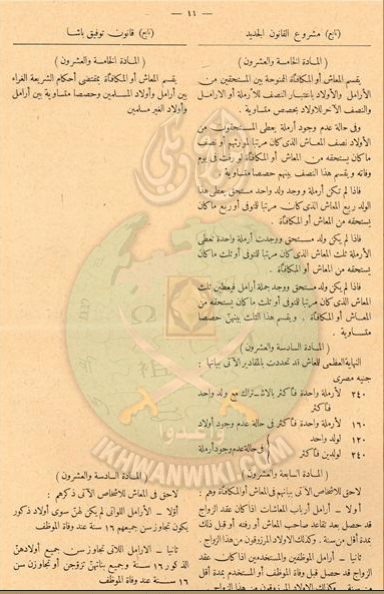 — ١١ —
(تابع) مشروع القانون الجديد
( المادة الخامسة والعشرون )
يقسم المعاش أو المكافأة الممنوحة بين المستحقين من
الأرامل والأولاد باعتبار النصف للأرملة أو الارامل
والنصف الآخر للاولاد بحصص متساوية .
وفى حالة عدم وجود أرملة يعطى المستحقون من
الأولاد نصف المعاش الذى كان مرتبا لمورثهم أو نصف
ما كان يستحقه من المعاش أو المكافأة لو رفت فى يوم
وفاته ويقسم هذا النصف بينهم حصصا متساوية .
فاذا لم تكن أرملة ووجد ولد واحد مستحق يعطى هذا
الولد ربع المعاش الذى كان مرتبا للمتوفى أو ربع ما كان
يستحقه من المعاش أو المكافأة .
فاذا لم يكن ولد مستحق ووجدت أرملة واحدة تعطى
الأرملة ثلث المعاش الذى كان مرتبا للمتوفى أو ثلث ما كان
يستحقه من المعاش أو المكافأة .
فاذا لم يكن ولد مستحق ووجد جملة أرامل فيعطين ثلث
المعاش الذى كان مرتبا للمتوفى أو ثلث ما كان يستحقه من
المعاش أو المكافأة . ويقسم هذا الثلث بينهن حصصا
متساوية .
( المادة السادسة والعشرون )
النهاية العظمى للمعاش قد تحددت بالمقادير الآتى بيانها :
جنيه مصرى
٢٤٠ لأرملة واحدة فأكثر بالاشتراك مع ولد واحد
فأكثر
١٦٠ لأرملة واحدة فأكثر فى حالة عدم وجود أولاد
١٢٠ لولد واحد
٢٤٠ لولدين فأكثر } فى حالة عدم وجود أرملة
( المادة السابعة والعشرون )
لاحق للاشخاص الآتى بيانهم فى المعاش أو المكافأة وهم :
أولا — أرامل أرباب المعاشات اذا كان عقد الزواج
قد حصل بعد تقاعد صاحب المعاش أو رفته أو قبل ذلك
بمدة أقل من سنة . وكذلك الاولاد المرزوقون من هذا الزواج .
ثانيا — أرامل الموظفين والمستخدمين اذا كان عقد
الزواج قد حصل قبل وفاة الموظف أو المستخدم بمدة أقل
من سنة . وكذلك الاولاد المرزوقون من هذا الزواج
(تابع) قانون توفيق باشا
( المادة الخامسة والعشرون )
يقسم المعاش أو المكافأة بمقتضى أحكام الشريعة الغراء
بين أرامل وأولاد المسلمين وحصصا متساوية بين أرامل
وأولاد الغير مسلمين
( المادة السادسة والعشرون )
لاحق فى المعاش للاشخاص الآتى ذكرهم :
أولا — الأرامل اللواتى لم يكن لهن سوى أولاد ذكور
يكون تجاوز سن جميعهم ١٦ سنة عند وفاة الموظف
ثانيا — الارامل اللاتى تجاوز سن جميع أولادهن
الذكور ١٦ سنة وجميع بناتهن تزوجن أو تجاوزن سن
١٦ سنة عند وفاة الموظف
وأعدوا
IKHWANWIKI.COM